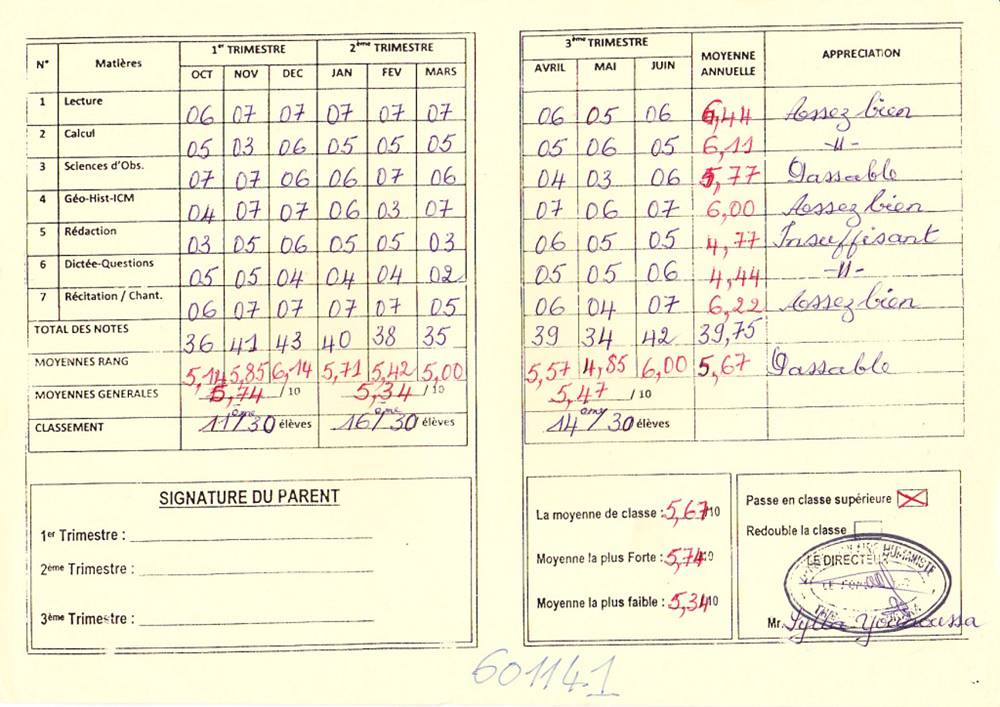 N° Matières 1er TRIMESTRE 2ème TRIMESTRE
OCT NOV DEC JAN FEV MARS
1 Lecture 06 07 07 07 07 07
2 Calcul 05 03 06 05 05 05
3 Sciences d'Obs. 07 07 06 06 07 06
4 Géo-Hist-ICM 04 07 07 06 03 07
5 Rédaction 03 05 06 05 05 03
6 Dictée-Questions 05 05 04 04 04 02
7 Récitation / Chant. 06 07 07 07 07 05
TOTAL DES NOTES 36 41 43 40 38 35
MOYENNES RANG 5,14 5,85 6,14 5,71 5,42 5,00
MOYENNES GENERALES 5,74 /10 5,34 /10
CLASSEMENT 11ème/30 élèves 16ème/30 élèves
SIGNATURE DU PARENT
1er Trimestre :
2ème Trimestre :
3ème Trimestre :
3ème TRIMESTRE MOYENNE ANNUELLE APPRECIATION
AVRIL MAI JUIN
06 05 06 6,44 Assez bien
05 06 05 6,11 -11-
04 03 06 5,77 Passable
07 06 07 6,00 Assez bien
06 05 05 4,77 Insuffisant
05 05 06 4,44 -11-
06 04 07 6,22 Assez bien
39 34 42 39,75
5,57 4,85 6,00 5,67 Passable
5,47 /10
14ème/30 élèves
La moyenne de classe : 5,67/10
Moyenne la plus Forte : 5,74/10
Moyenne la plus faible : 5,34/10
Passe en classe supérieure
Redouble la classe
HUMANISTE
LE DIRECTEUR
Mr. Sylla Youmoussa
601141